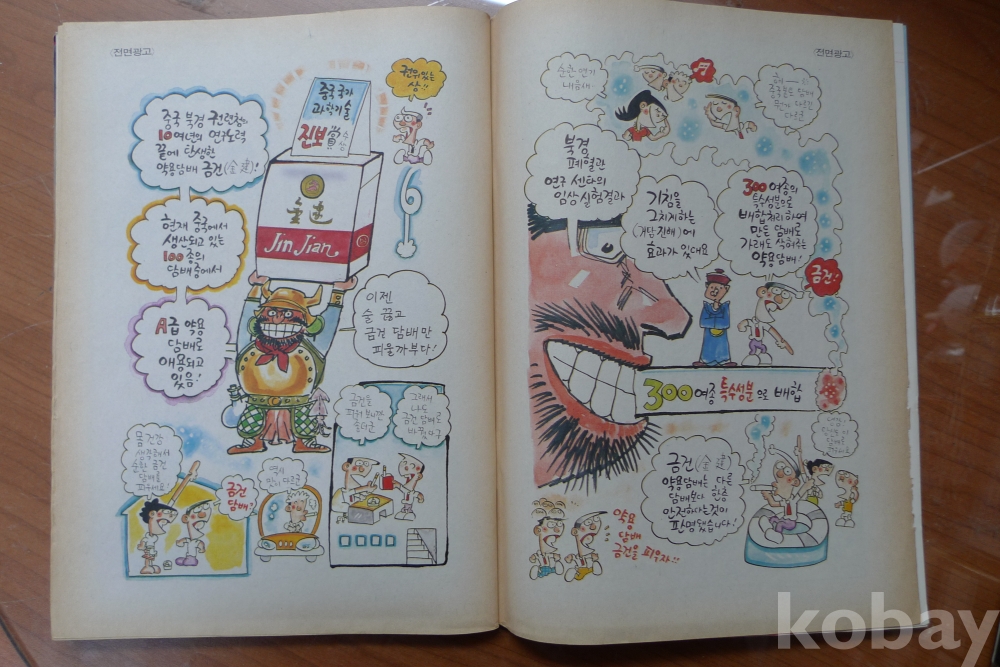 <전면광고>
중국 북경 권련창의
10여년의 연구노력
끝에 탄생한
약용담배 금건(金建)!
현재 중국에서
생산되고 있는
100종의
담배중에서
A급 약용
담배로
애용되고
있음!
중국 국가
과학기술
진보賞
수상
권위있는
상!!
金建
Jin Jian
6
이젠
술 끊고
금건 담배만
피울까부다!
몸건강
생각해서
순한 금건
담배로
금건
담배?
역시
맛이 다르군
금건을
그래서
나도
금건 담배로
바꿨다구
<전면광고>
순한 연기
내음새
중국
북경
폐열관
연구 센타의
임상실험결과
기침을
그치게하는
(거담진해)에
효과가 있대요
300여종의
특수성분으로
배합처리하여
만든 담배로
가래도 삭혀주는
약용담배!
금건!
300여종 특수성분으로 배합
금건(金建)
약용담배는 다른
담배보다 한층
안전하다는것이
판명됐습니다!
약용
담배
금건을 피우자!!
kobay